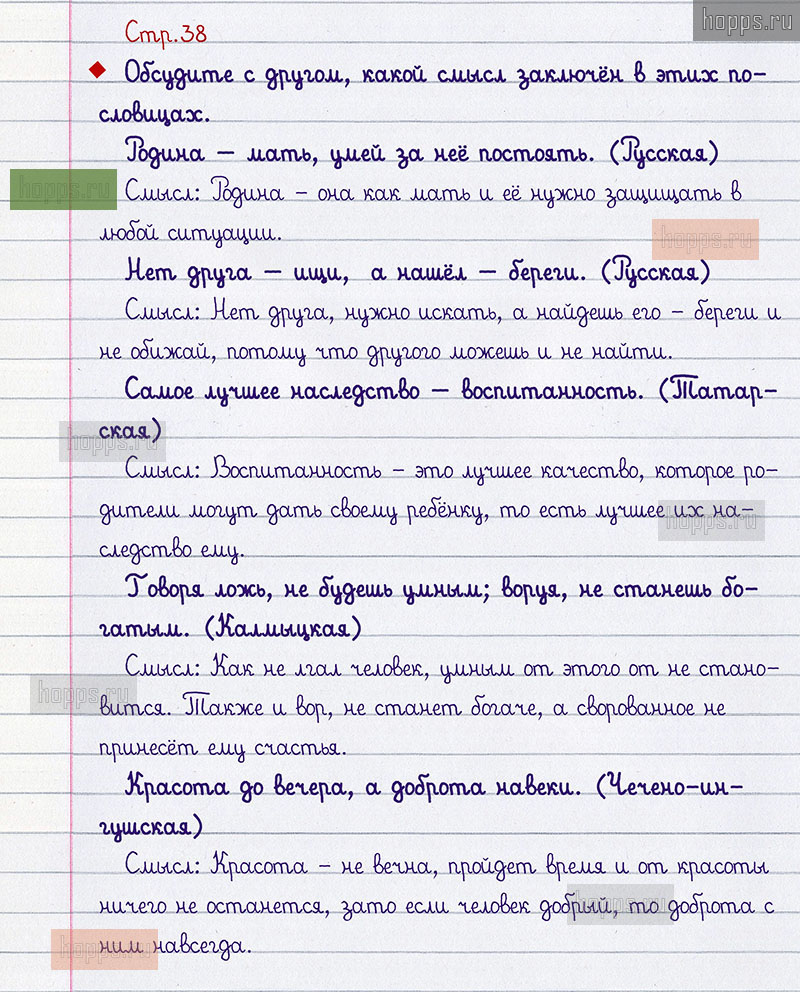 hopps.ru
Стр.38
Обсудите с другом, какой смысл заключён в этих по-
словицах.
Родина – мать, умей за неё постоять. (Русская)
hopps.ru
Смысл: Родина – она как мать и её нужно защищать в
любой ситуации.
hopps.ru
Нет друга – ищи, а нашёл – береги. (Русская)
Смысл: Нет друга, нужно искать, а найдешь его – береги и
не обижай, потому что другого можешь и не найти.
Самое лучшее наследство – воспитанность. (Татар-
ская)
hopps.ru
Смысл: Воспитанность – это лучшее качество, которое ро-
дители могут дать своему ребёнку, то есть лучшее их на-
hopps.ru
следство ему.
Говоря ложь, не будешь умным; воруя, не станешь бо-
гатым. (Калмыцкая)
Смысл: Как не лгал человек, умным от этого от не стано-
hopps.ru
вится. Также и вор, не станет богаче, а сворованное не
принесёт ему счастья.
Красота до вечера, а доброта навеки. (Чечено-ин-
гушская)
Смысл: Красота – не вечна, пройдет время и от красоты
ничего не останется, зато если человек добрый, то доброта с
hopps.ru
ним навсегда.
hopps.ru